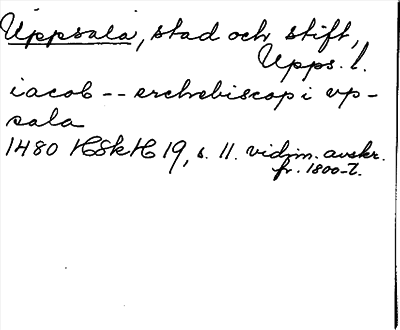 Uppsala, stad och stift,
Upps. l.
iacob -- erchebiscop i vp-
sala
1480 HSkH 19, s. 11. vidim. avskr.
fr. 1800-t.